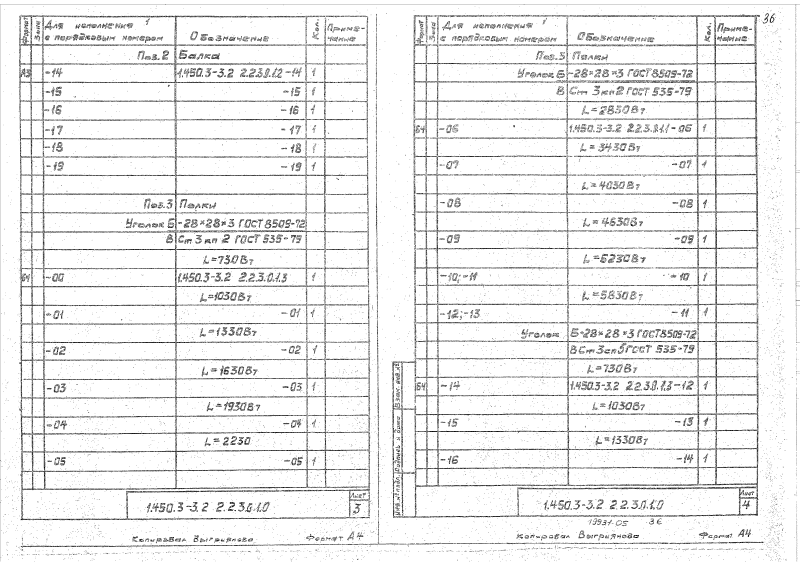 Формат Зона Для исполнения 1 с порядковым номером Обозначение Кол. Приме-чание
Поз.2 Балка
А3 -14 1.450.3-3.2 2.2.3.0.1.2-14 1
-15 -15 1
-16 -16 1
-17 -17 1
-18 -18 1
-19 -19 1
Поз.3 Полки
Уголок Б-28×28×3 ГОСТ 8509-72
В Ст 3 кп 2 ГОСТ 535-79
L=730 Вт
Б4 -00 1.450.3-3.2 2.2.3.0.1.3 1
L=1030 Вт
-01 -01 1
L=1330 Вт
-02 -02 1
L=1630 Вт
-03 -03 1
L=1930 Вт
-04 -04 1
L=2230
-05 -05 1
1.450.3-3.2 2.2.3.0.1.0 Лист 3
Копировал Выгриянова Формат А4
36
Формат Зона Для исполнения 1 с порядковым номером Обозначение Кол. Приме-чание
Поз.3 Полки
Уголок Б-28×28×3 ГОСТ 8509-72
В Ст 3 кп 2 ГОСТ 535-79
L=2830 Вт
Б4 -06 1.450.3-3.2 2.2.3.0.1.1-06 1
L=3430 Вт
-07 -07 1
L=4030 Вт
-08 -08 1
L=4630 Вт
-09 -09 1
L=5230 Вт
-10;-11 -10 1
L=5830 Вт
-12;-13 -11 1
Уголок Б-28×28×3 ГОСТ 8509-72
В Ст 3 сп 5 ГОСТ 535-79
L=730 Вт
Б4 -14 1.450.3-3.2 2.2.3.0.1.3-12 1
L=1030 Вт
-15 -13 1
L=1330 Вт
-16 -14 1
Инв.№ подл. Подпись и дата Взам. инв.№
1.450.3-3.2 2.2.3.0.1.0 Лист 4
19931-05 36
Копировал Выгриянова Формат А4